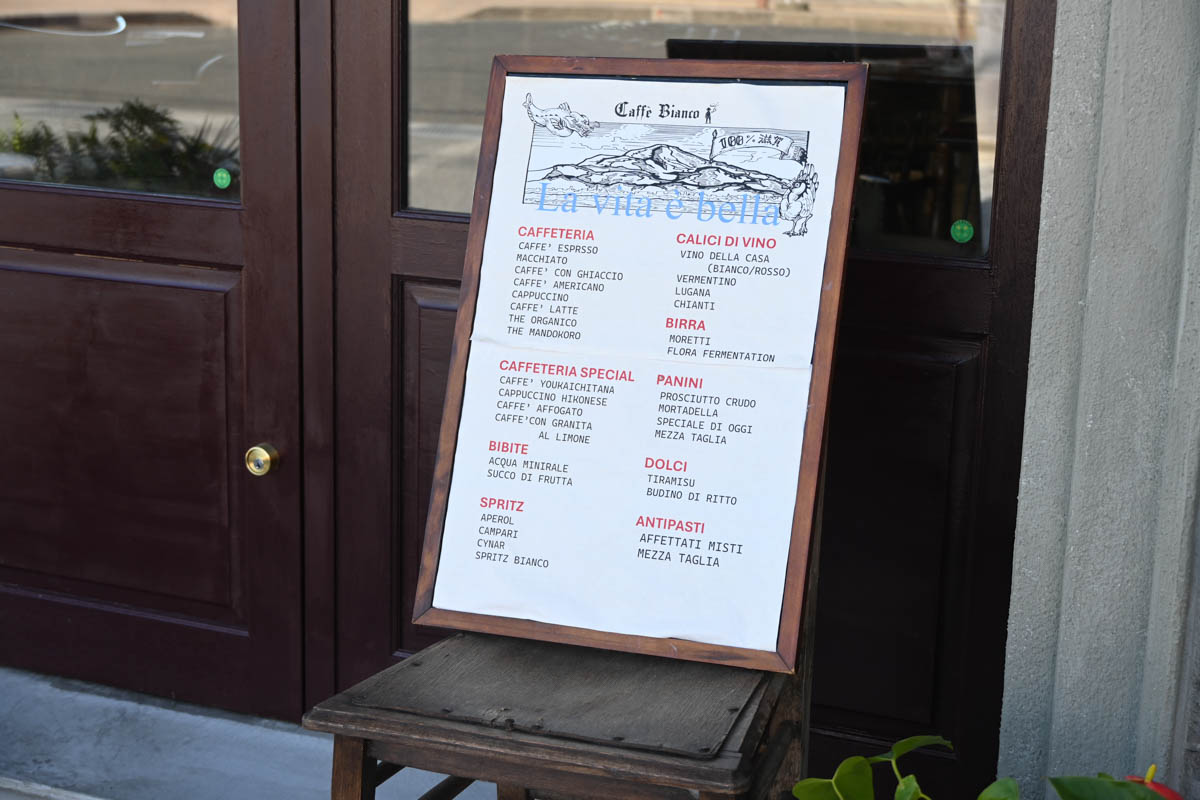 Caffè Bianco
100%
La vita è bella
CAFFETERIA
CAFFE' ESPRSSO
MACCHIATO
CAFFE' CON GHIACCIO
CAFFE' AMERICANO
CAPPUCCINO
CAFFE' LATTE
THE ORGANICO
THE MANDOKORO
CAFFETERIA SPECIAL
CAFFE' YOUKAICHITANA
CAPPUCCINO HIKONESE
CAFFE' AFFOGATO
CAFFE'CON GRANITA
AL LIMONE
BIBITE
ACQUA MINIRALE
SUCCO DI FRUTTA
SPRITZ
APEROL
CAMPARI
CYNAR
SPRITZ BIANCO
CALICI DI VINO
VINO DELLA CASA
(BIANCO/ROSSO)
VERMENTINO
LUGANA
CHIANTI
BIRRA
MORETTI
FLORA FERMENTATION
PANINI
PROSCIUTTO CRUDO
MORTADELLA
SPECIALE DI OGGI
MEZZA TAGLIA
DOLCI
TIRAMISU
BUDINO DI RITTO
ANTIPASTI
AFFETTATI MISTI
MEZZA TAGLIA